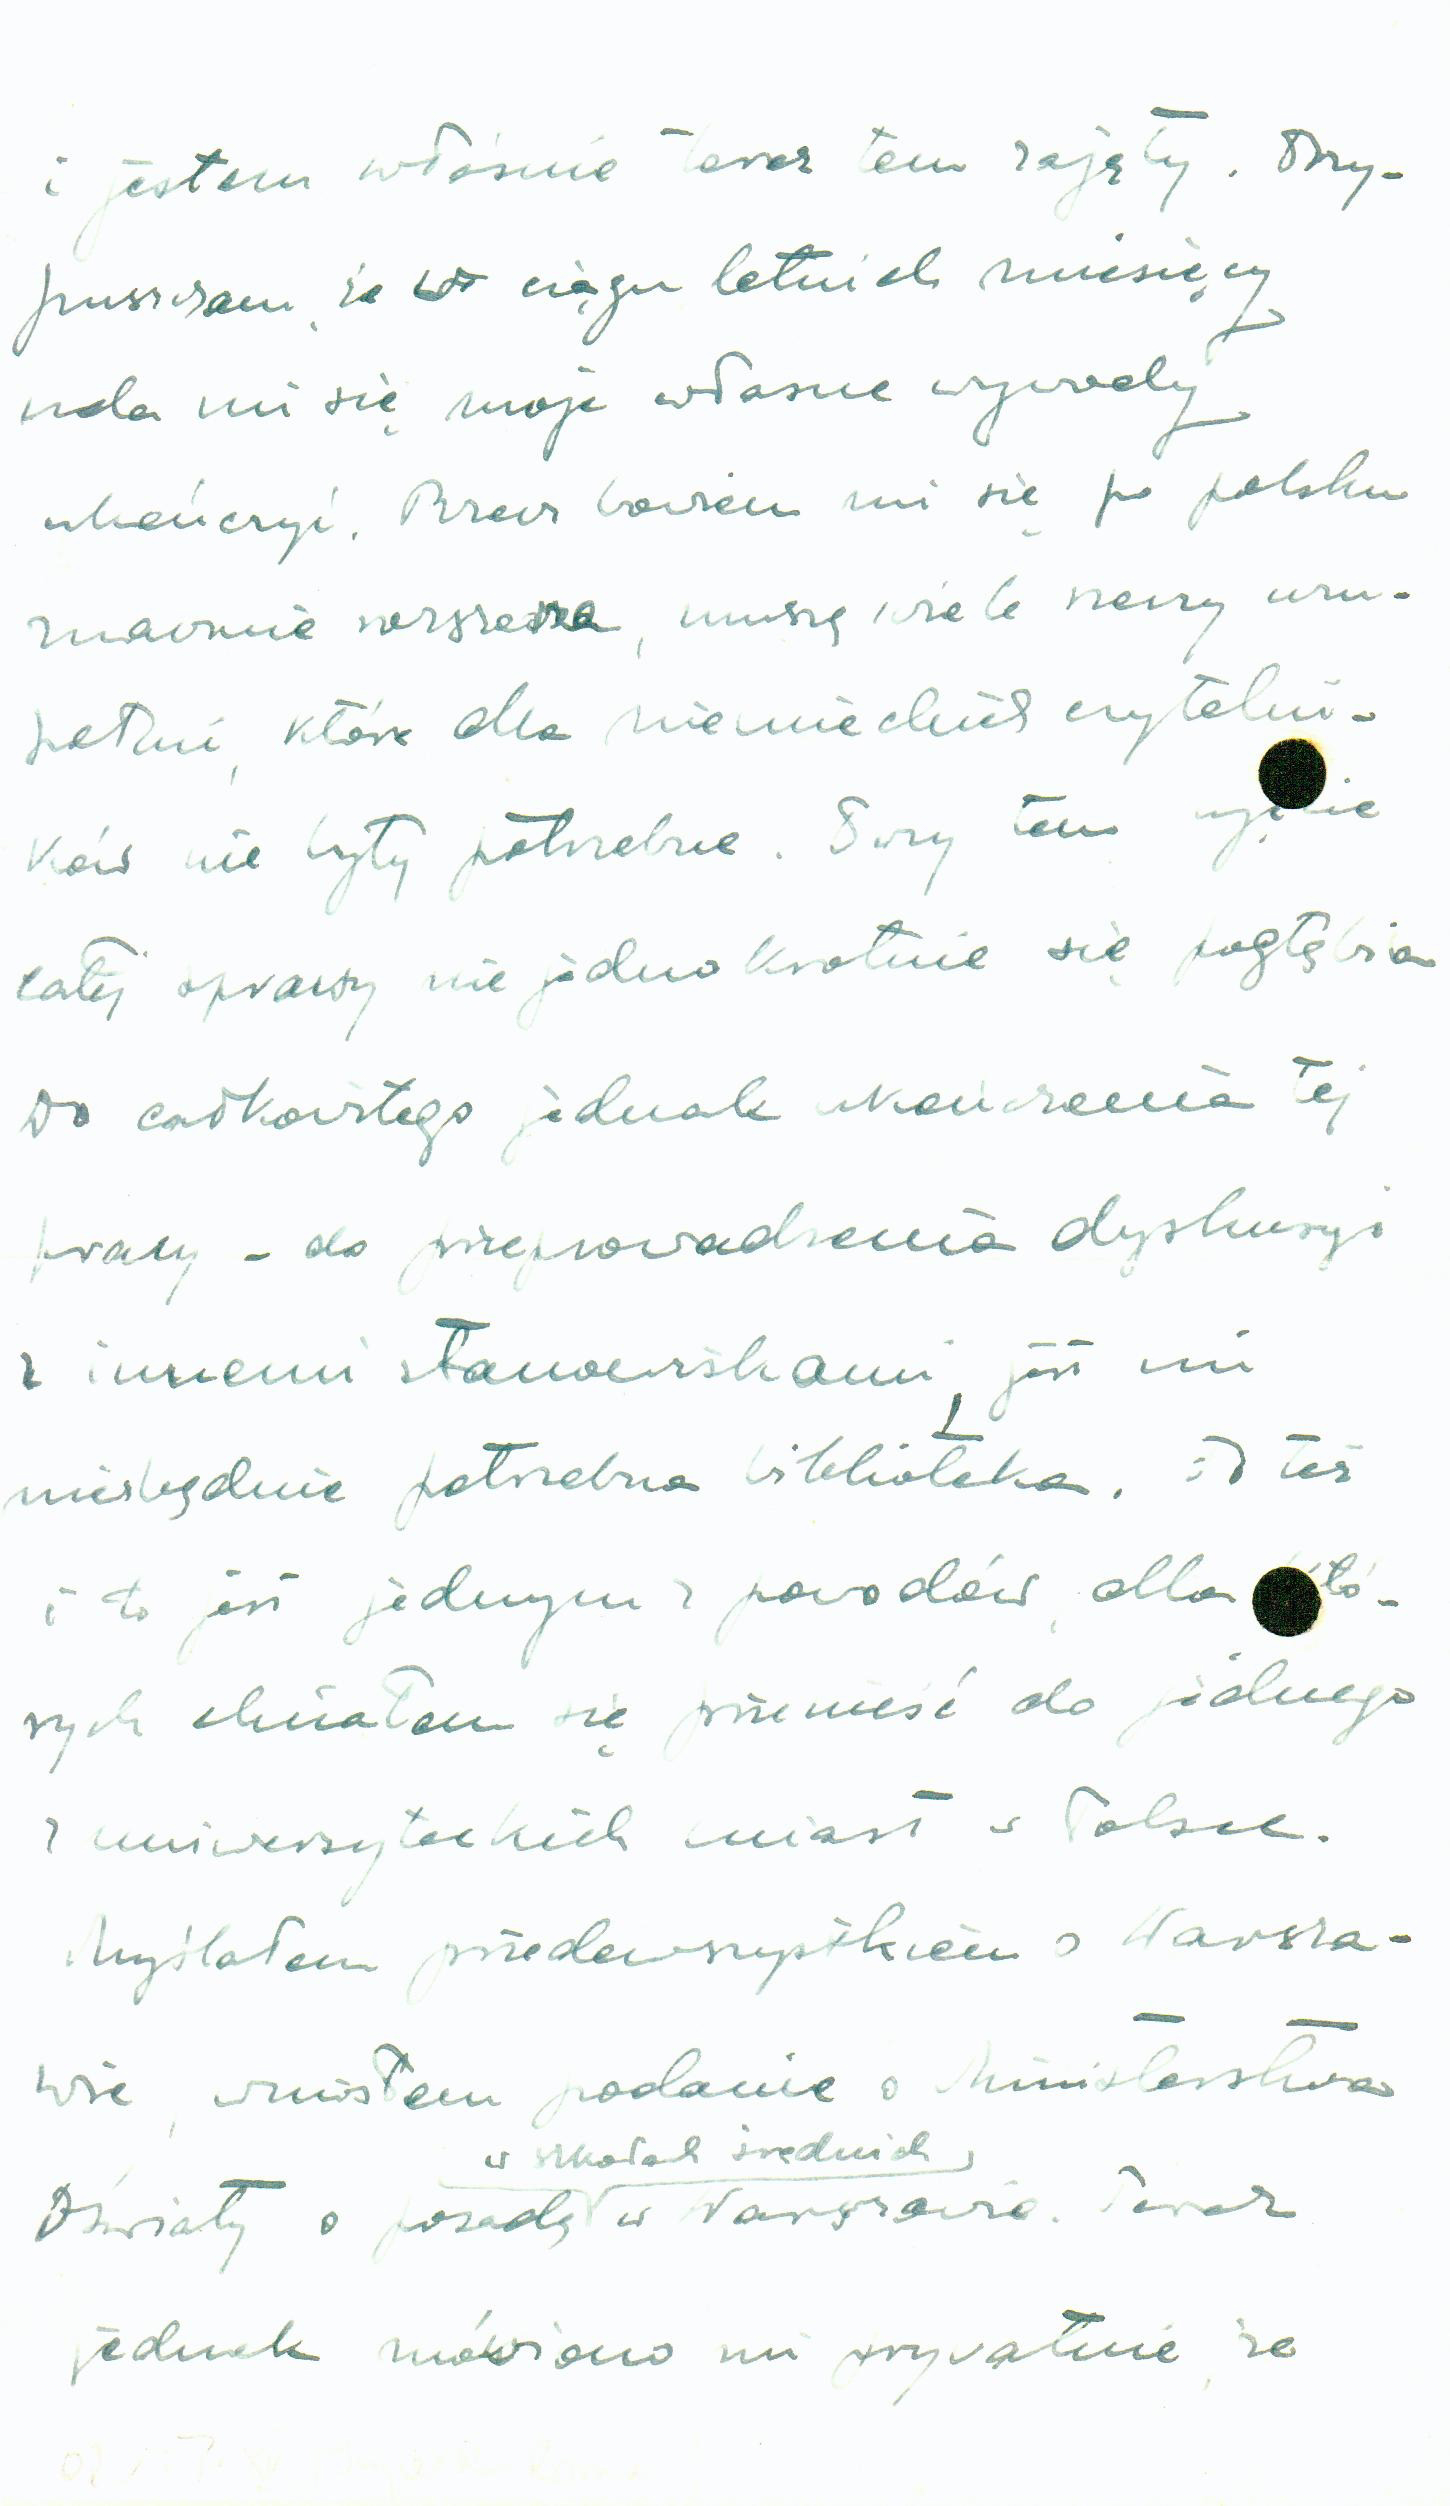 i jestem właśnie teraz tem zajęty. Przy-
puszczam, że w ciągu letnich miesięcy
uda mi się moje własne wywody
ukończyć. Rzecz bowiem mi się po polsku
znacznie rozszerza, muszę wiele rzeczy uzu-
pełnić, które dla niemieckich czytelni-
ków nie były potrzebne. Przy tem ujęcie
całej sprawy niejednokrotnie się pogłębia
Do całkowitego jednak ukończenia tej
pracy – do przeprowadzenia dyskusyi
z innemi stanowiskami, jest mi
niezbędnie potrzebna biblioteka. I też
i to jest jednym z powodów, dla któ-
rych chciałem się przenieść do jednego
z uniwersyteckich miast w Polsce.
Myślałem przedewszystkiem o Warsza-
wie, wniosłem podanie o Ministerstwa
w szkołach średnich
Oświaty o posadę w Warszawie. Teraz
jednak mówiono mi prywatnie, że